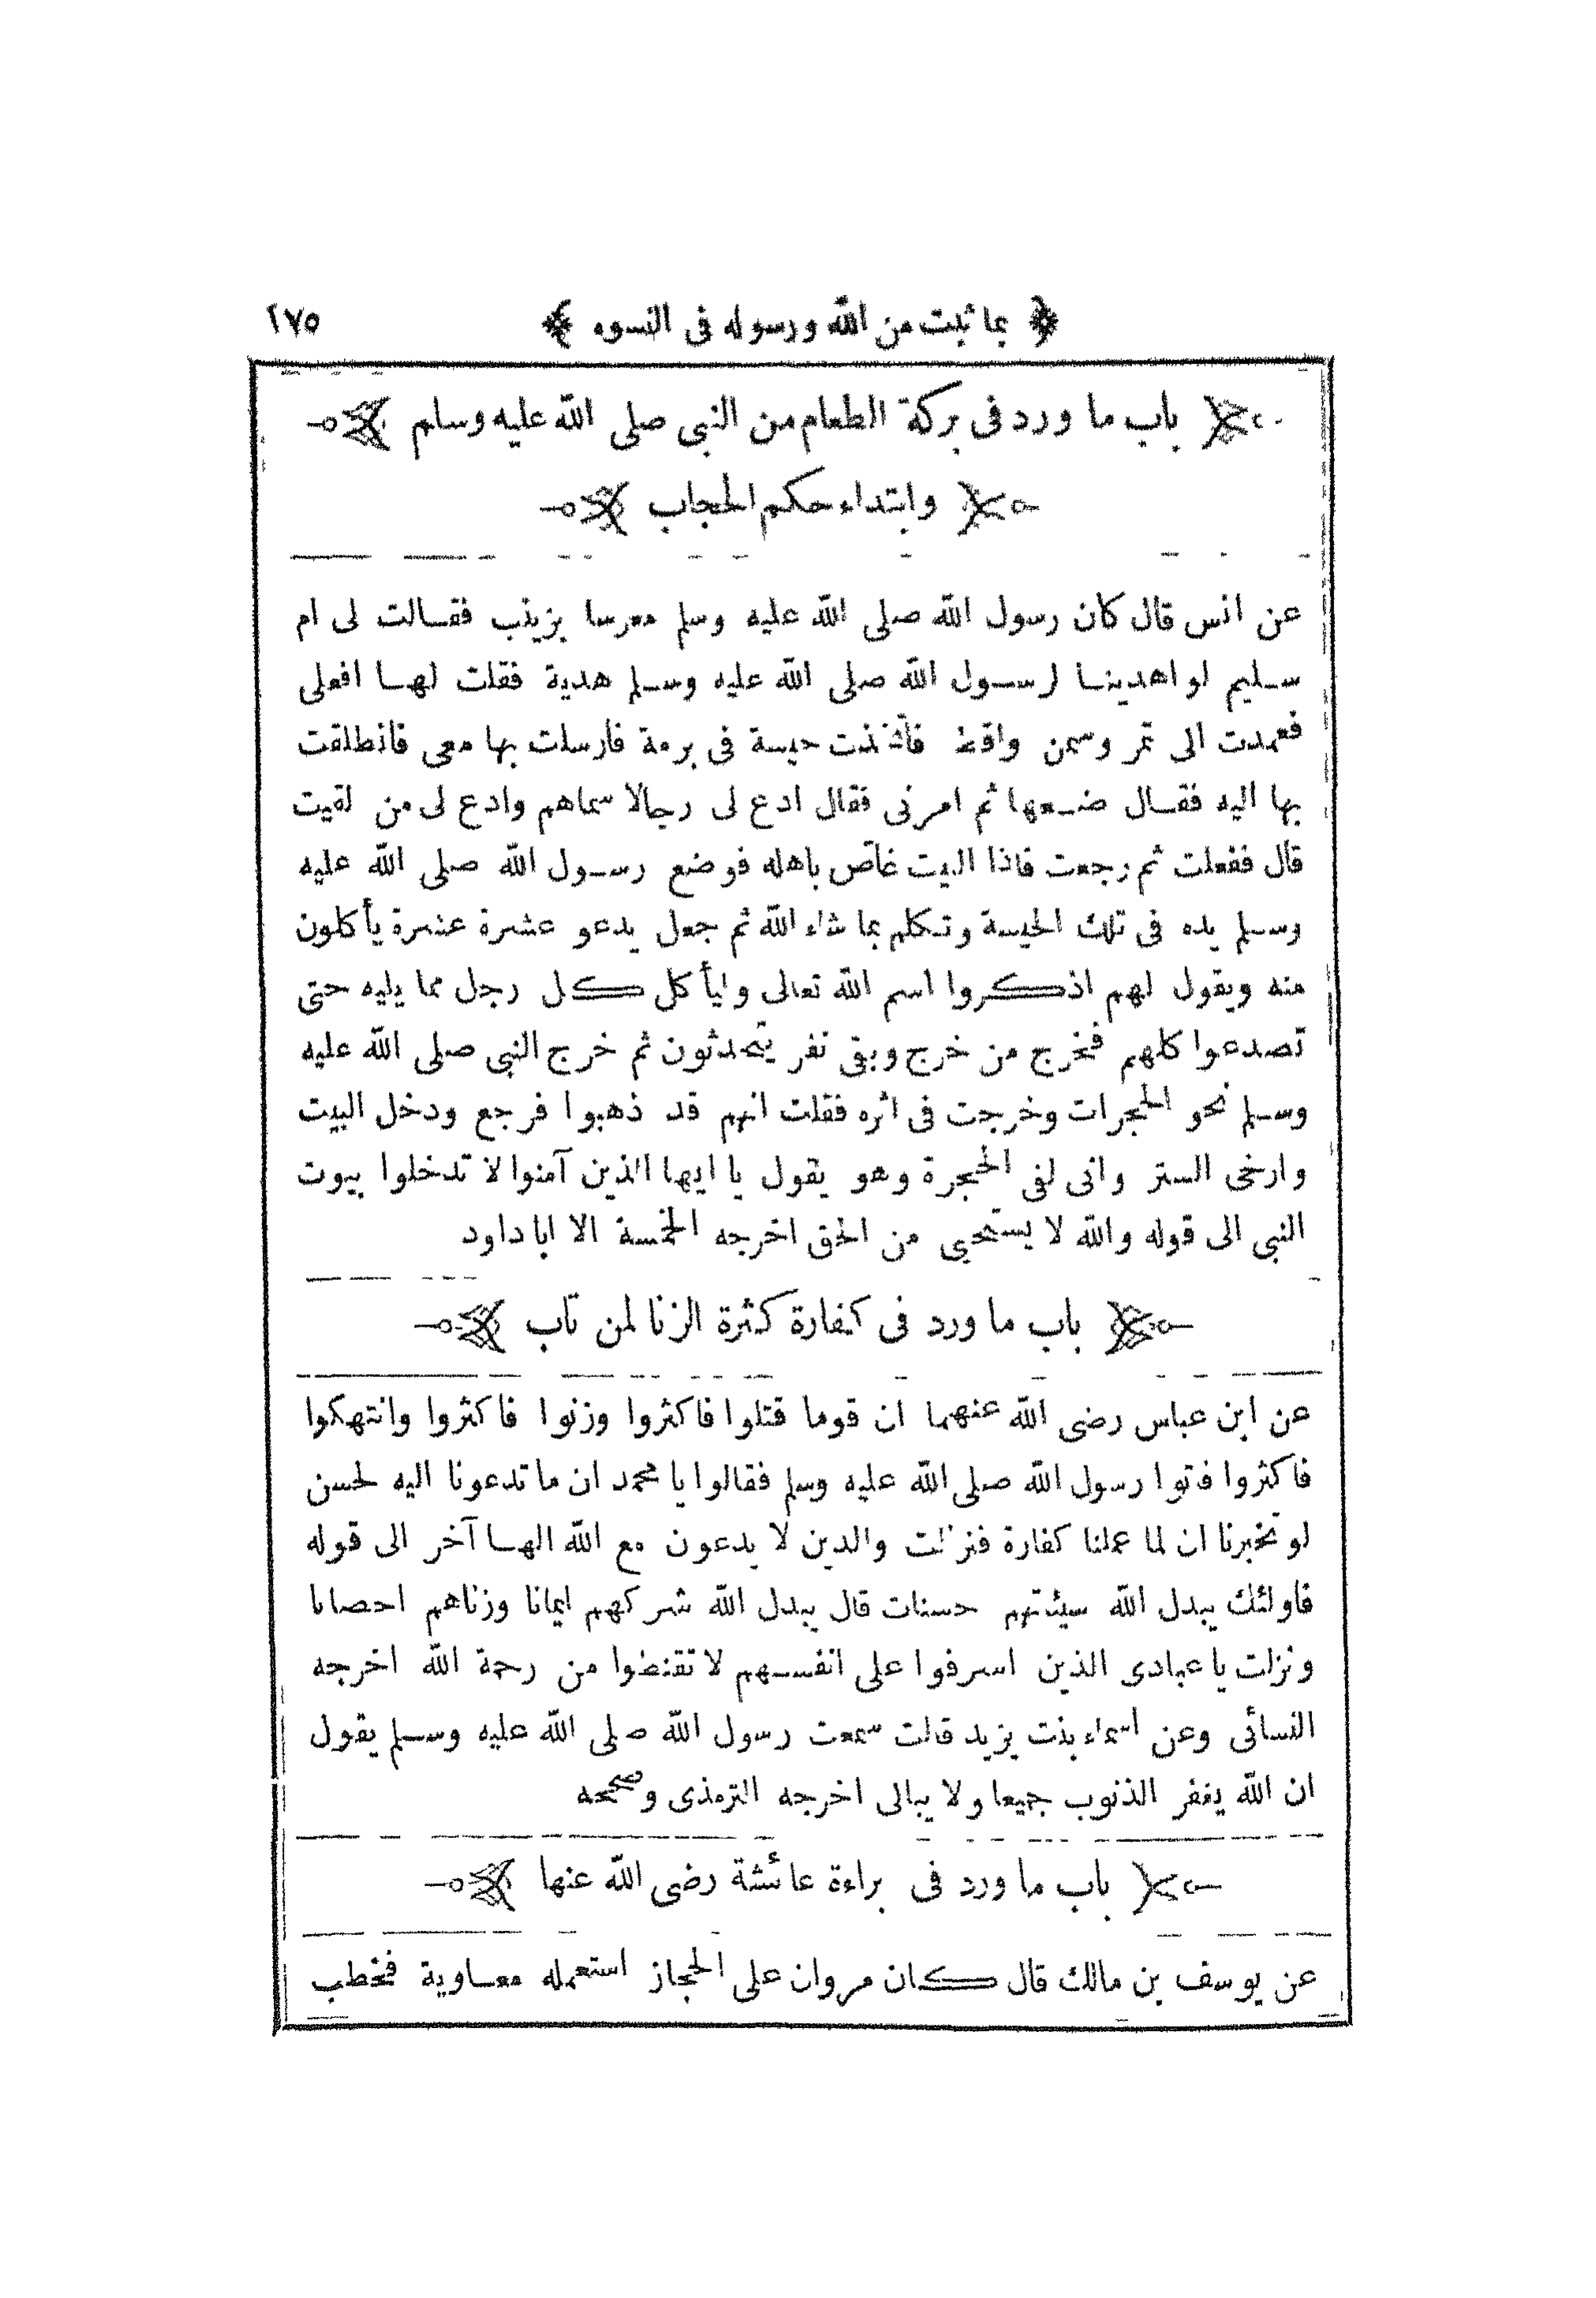 بما ثبت من الله ورسوله فى النسوه ٢٧٥
باب ما ورد فى بركة الطعام من النبى صلى الله عليه وسلم
وابتداء حكم الحجاب
عن انس قال كان رسول الله صلى الله عليه وسلم معرسا بزينب فقالت لى ام
سليم لو اهدينا لرسول الله صلى الله عليه وسلم هدية فقلت لها افعلى
فعمدت الى تمر وسمن واقط فاتخذت حيسة فى برمة فارسلت بها معى فانطلقت
بها اليه فقال ضعها ثم امرنى فقال ادع لى رجالا سماهم وادع لى من لقيت
قال ففعلت ثم رجعت فاذا البيت غاص باهله فوضع رسول الله صلى الله عليه
وسلم يده فى تلك الحيسة وتكلم بما شاء الله ثم جعل يدعو عشرة عشرة يأكلون
منه ويقول لهم اذكروا اسم الله تعالى وليأكل كل رجل مما يليه حتى
تصدعوا كلهم فخرج من خرج وبقى نفر يتحدثون ثم خرج النبى صلى الله عليه
وسلم نحو الحجرات وخرجت فى اثره فقلت انهم قد ذهبوا فرجع ودخل البيت
وارخى الستر وانى لفى الحجرة وهو يقول يا ايها الذين آمنوا لا تدخلوا بيوت
النبى الى قوله والله لا يستحيى من الحق اخرجه الخمسة الا ابا داود
باب ما ورد فى كفارة كثرة الزنا لمن تاب
عن ابن عباس رضى الله عنهما ان قوما قتلوا فاكثروا وزنوا فاكثروا وانتهكوا
فاكثروا فتوا رسول الله صلى الله عليه وسلم فقالوا يا محمد ان ما تدعونا اليه لحسن
لو تخبرنا ان لما عملنا كفارة فنزلت والدين لا يدعون مع الله الها آخر الى قوله
فاولئك يبدل الله سيئتهم حسنات قال يبدل الله شركهم ايمانا وزناهم احصانا
ونزلت يا عبادى الذين اسرفوا على انفسهم لا تقنطوا من رحمة الله اخرجه
النسائى وعن اسماء بنت يزيد قالت سمعت رسول الله صلى الله عليه وسلم يقول
ان الله يغفر الذنوب جميعا ولا يبالى اخرجه الترمذى وصححه
باب ما ورد فى براءة عائشة رضى الله عنها
عن يوسف بن مالك قال كان مروان على الحجاز استعمله معاوية فخطب